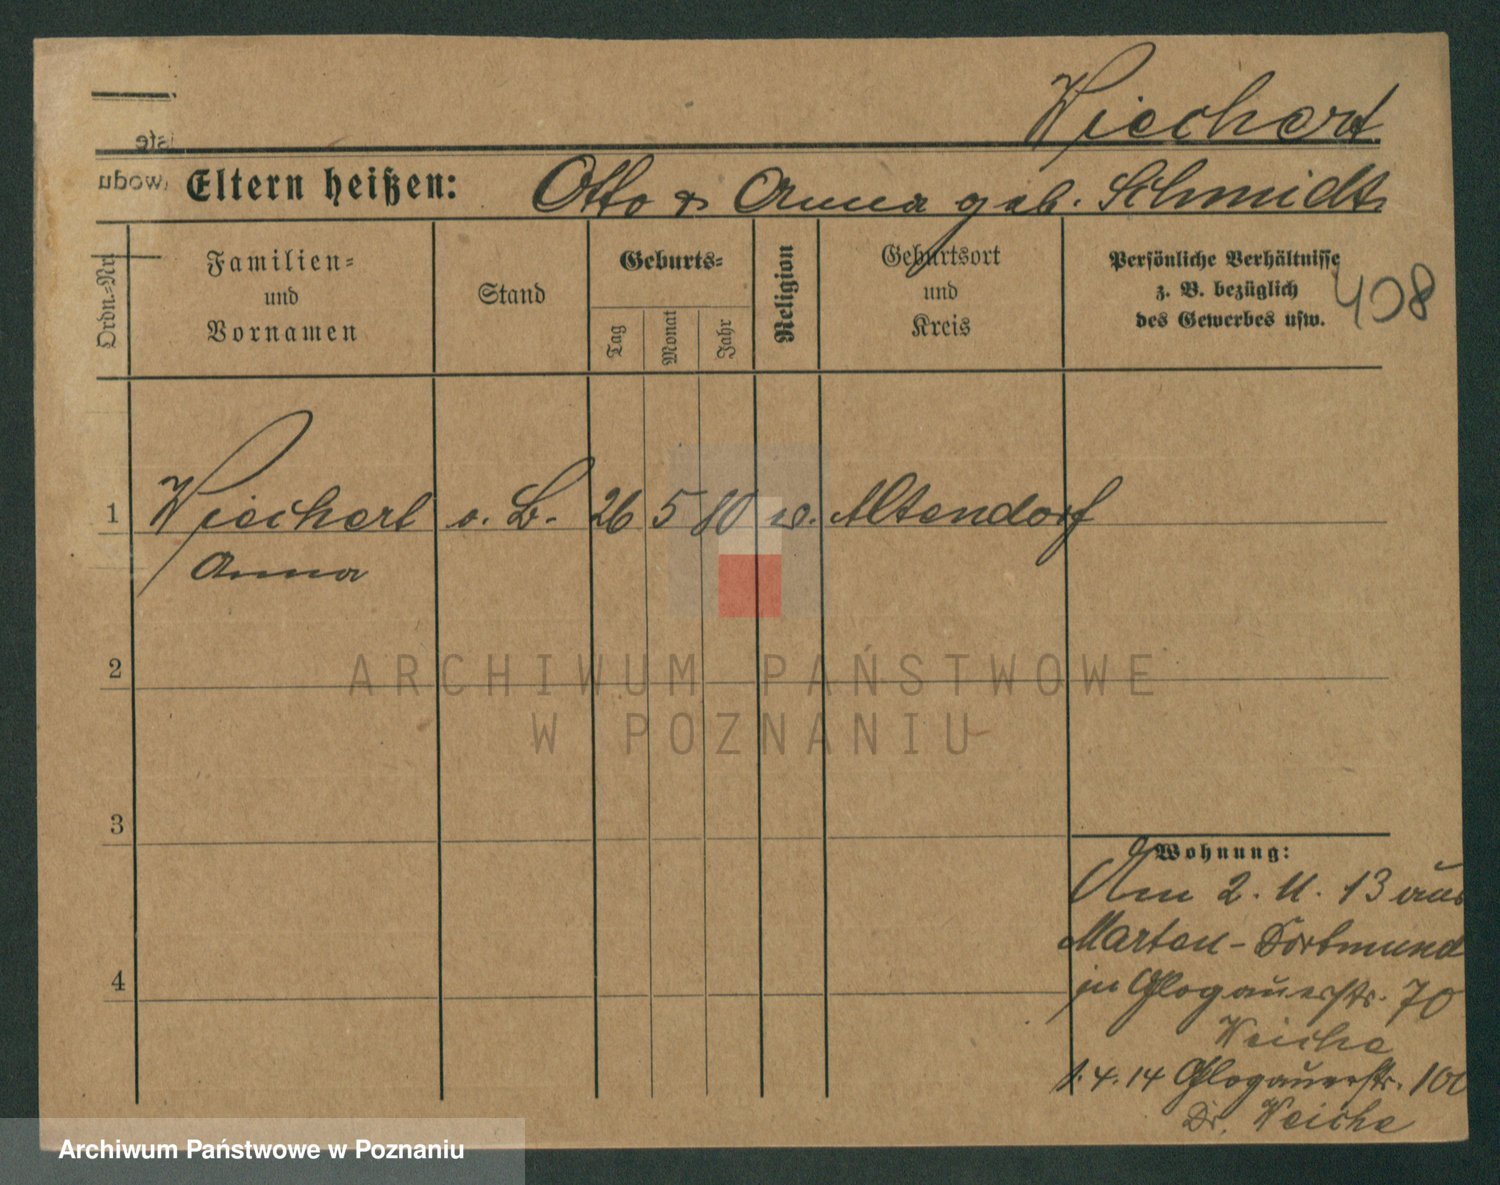 Wiechert
Eltern heißen: Otto & Anna geb. Schmidt
Ordn.-Nr.
Familien-
und
Vornamen
Stand
Geburts-
Tag
Monat
Jahr
Religion
Geburtsort
und
Kreis
Persönliche Verhältnisse
z. B. bezüglich
des Gewerbes usw.
408
1 Wiechert o. B. 26 5 80 w. Altendorf
Anna
2
ARCHIWUM PAŃSTWOWE
W POZNANIU
3
4
Wohnung:
Am 2. 11. 13 aus
Marten-Dortmund
in Glogauerstr. 70
Weiche
1.4.14 Glogauerstr. 100
Dr. Weiche
Archiwum Państwowe w Poznaniu